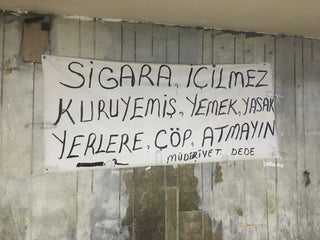 SİGARA, İÇİLMEZ
KURUYEMİŞ, YEMEK, YASAK
YERLERE, ÇÖP, ATMAYIN
MÜDÜRİYET DEDE